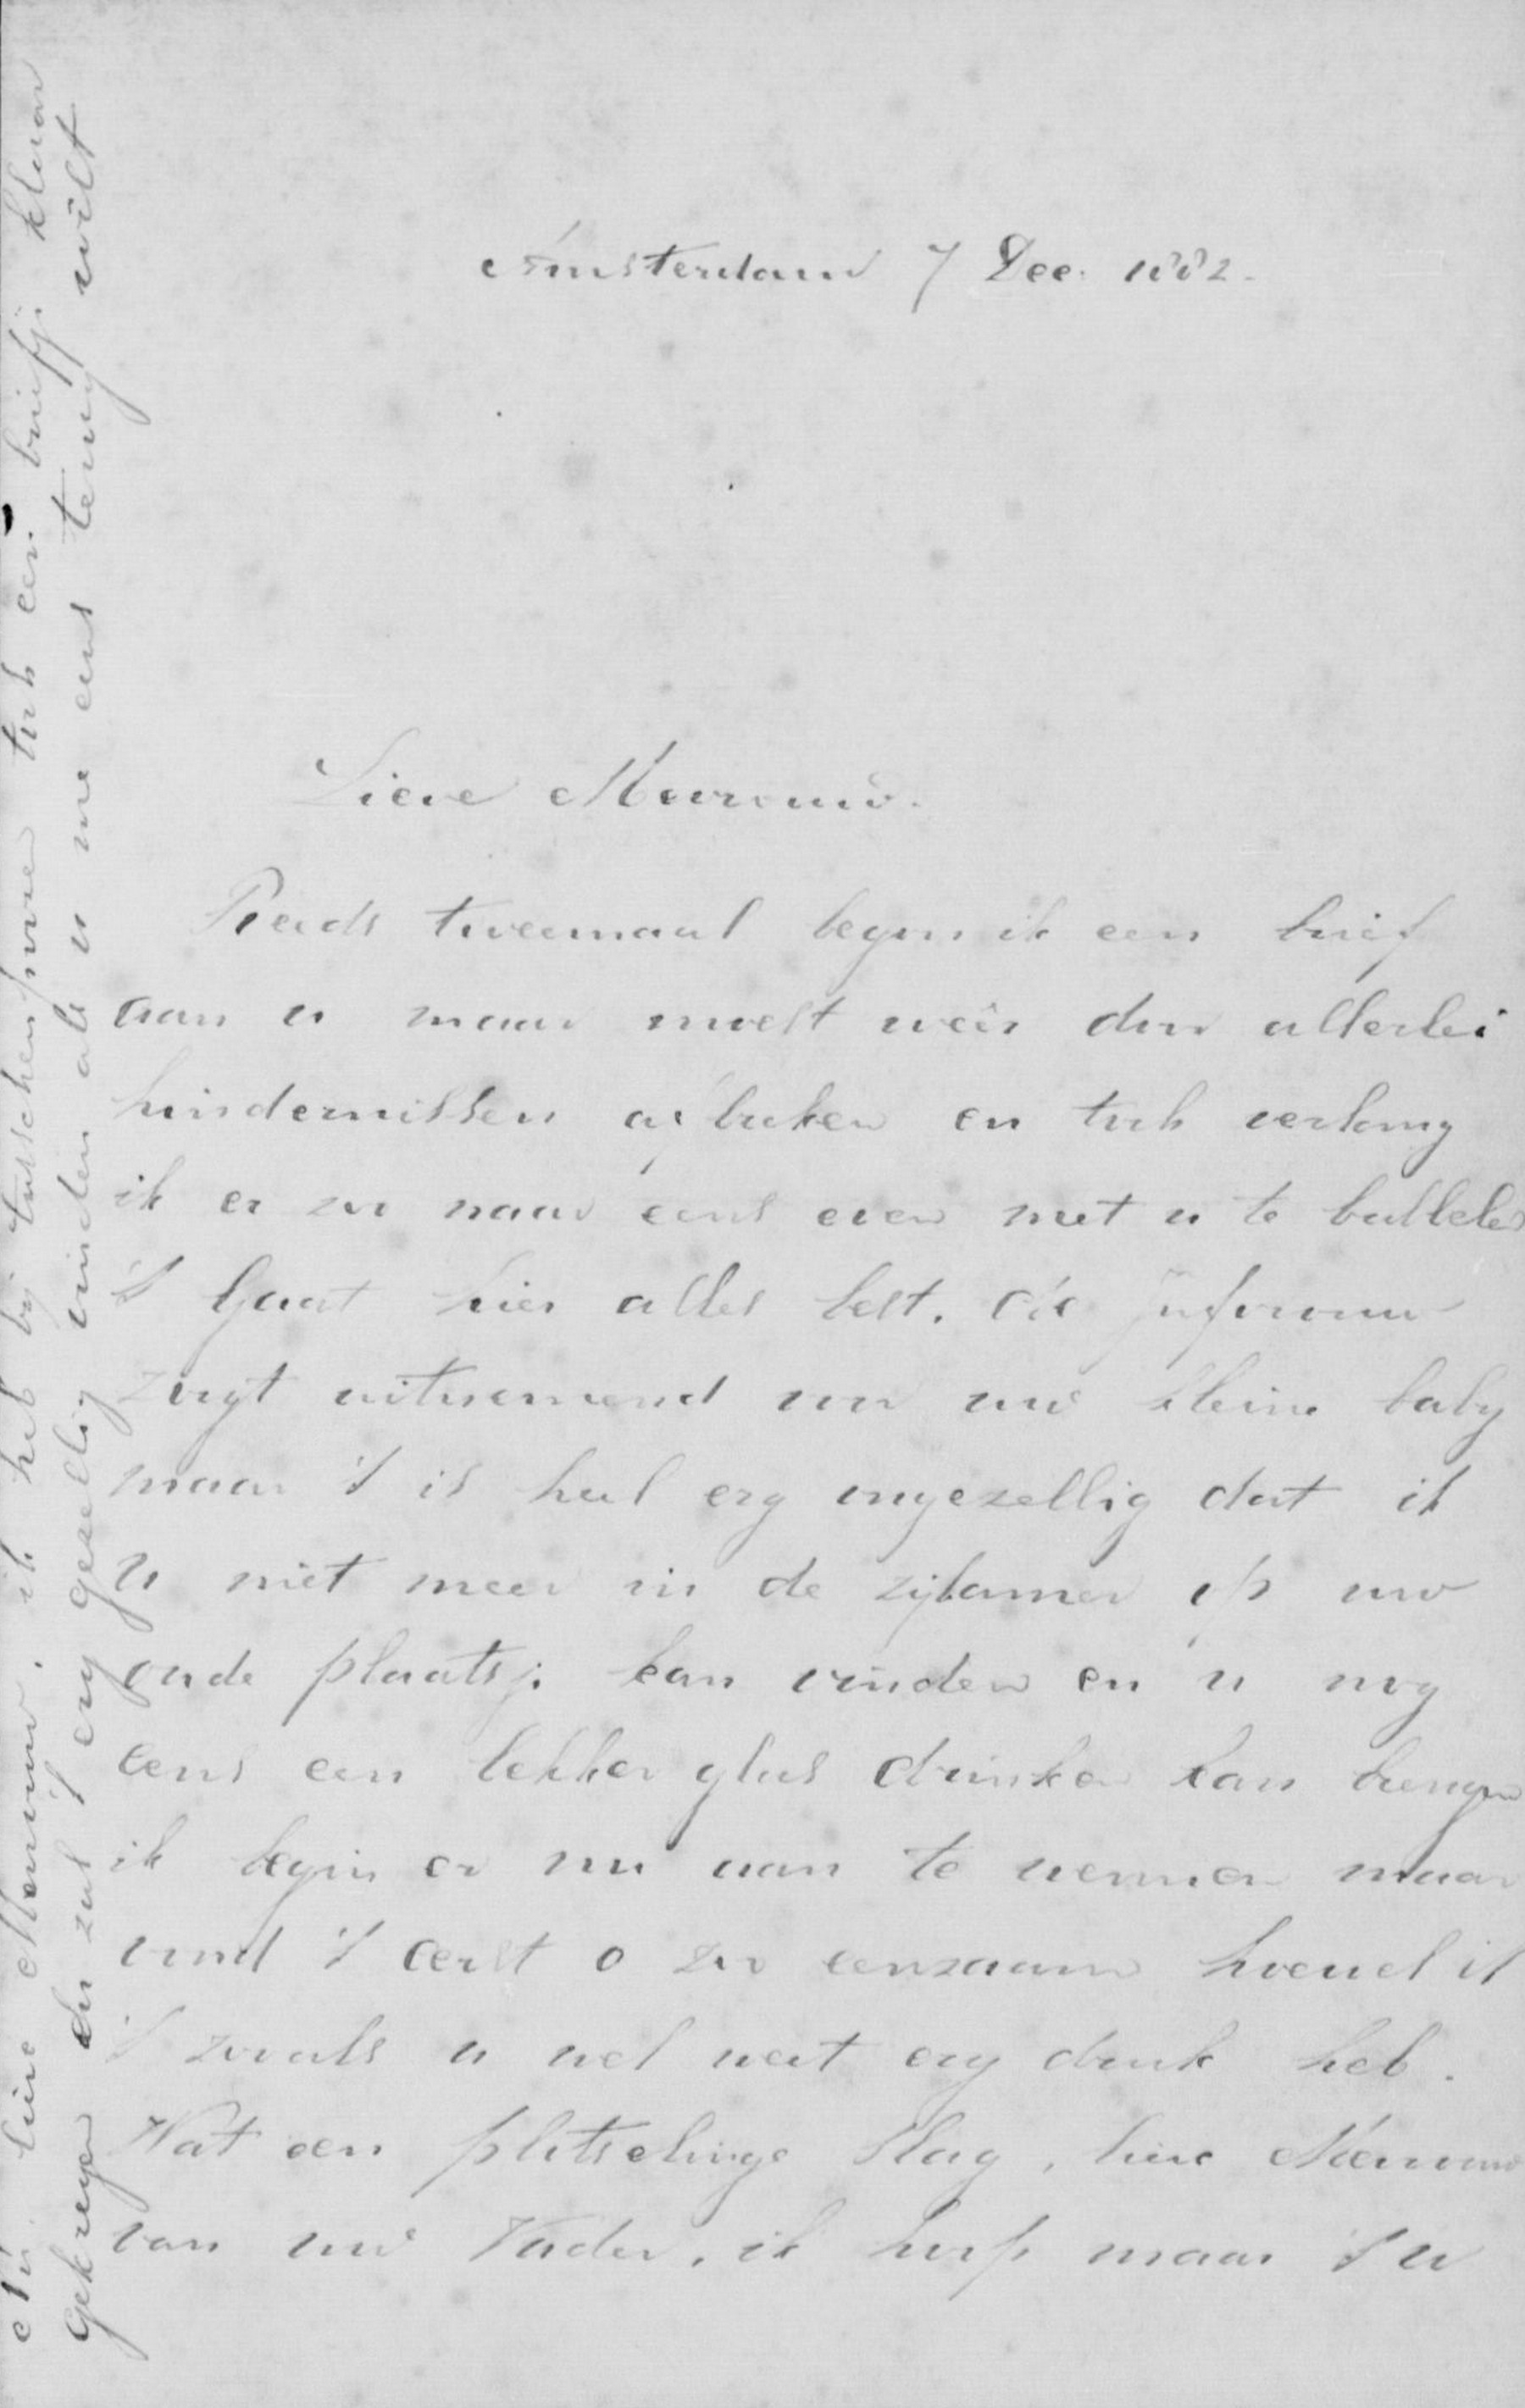 Amsterdam 7 Dec. 1882.
Lieve Mevrouw.
Reeds tweemaal begon ik een brief
aan u maar moest weêr door allerlei
hindernissen afbreken en toch verlang
ik er zoo naar eens even met u te babbelen
't Gaat hier alles best. De juffrouw
zorgt uitnemend voor uw kleine baby
maar 't is heel erg ongezellig dat ik
U niet meer in de zijkamer op uw
oude plaatsje kan vinden en u nog
eens een lekker glas drinken kan brengen
ik begin er nu aan te wennen maar
vond 't eerst o zoo eenzaam hoewel ik
't zooals u wel weet erg druk heb.
Wat een plotselinge slag, lieve Mevrouw
van uw Vader, ik hoop maar 't u
Nu lieve Mevrouw, ik heb bij tusschenpoozen toch een briefje klaar
gekregen en zal 't erg gezellig vinden als u me eens terug wilt